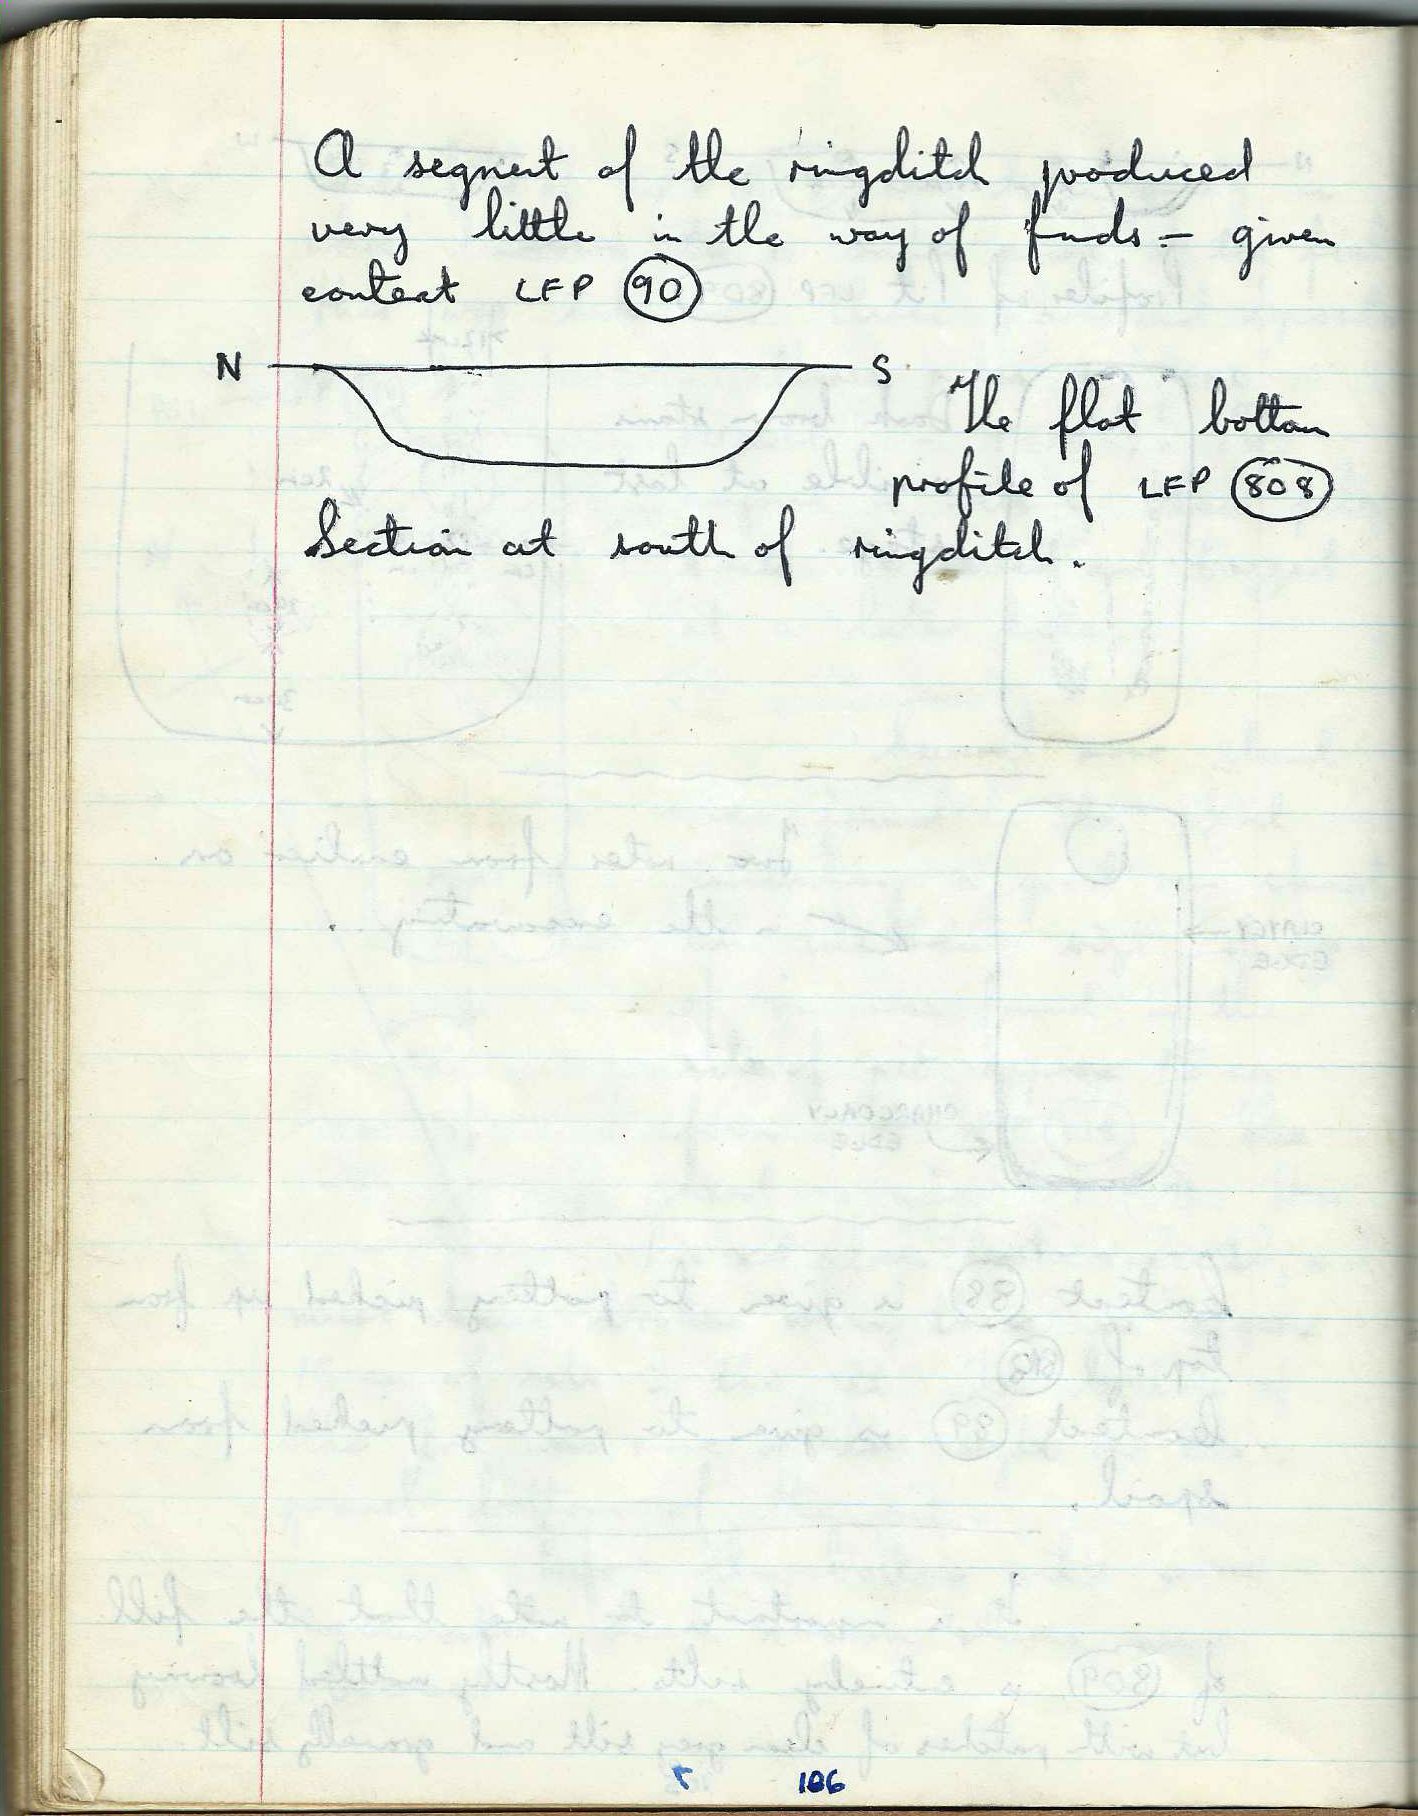 A segment of the ringditch produced
very little in the way of finds – given
context LFP 90
N S
The flat bottom
profile of LFP 808
Section at south of ringditch.
106